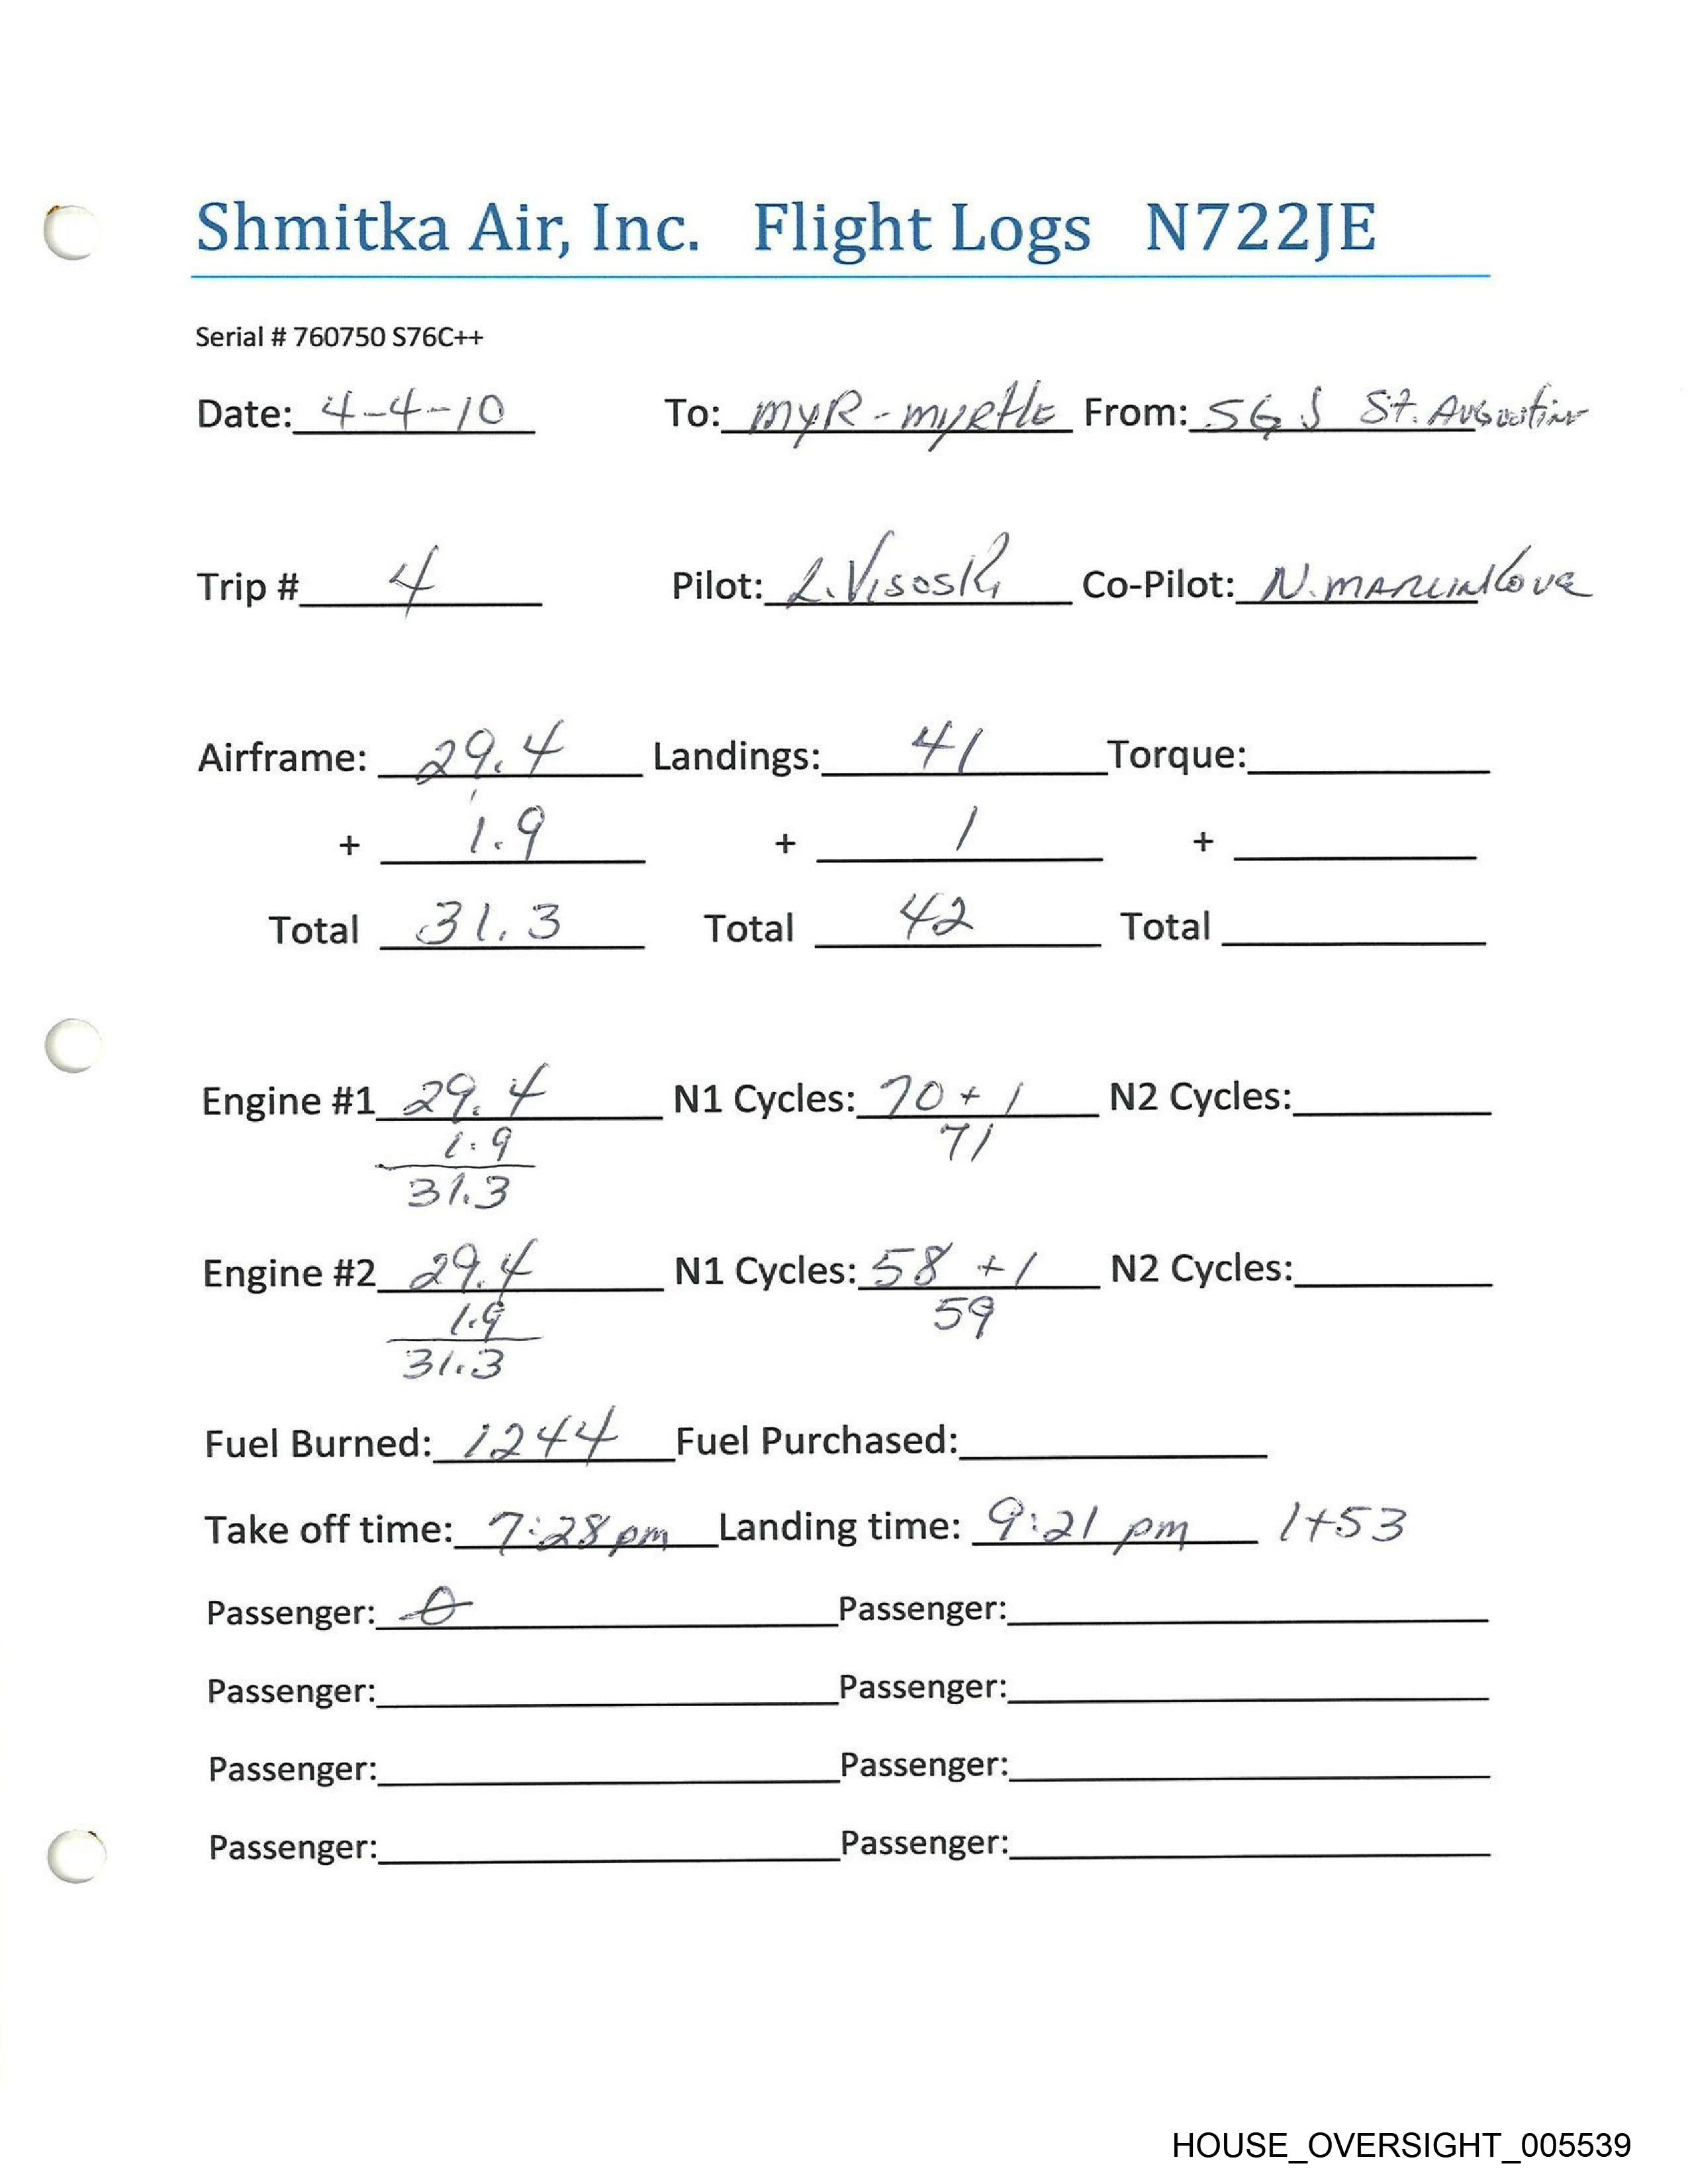 Shmitka Air, Inc. Flight Logs N722JE
Serial # 760750 S76C++
Date: 4-4-10 To: MYR - MYRtle From: SGJ St. Augustin
Trip # 4 Pilot: L. Visoski Co-Pilot: N. MARCINKOVA
Airframe: 29.4 Landings: 41 Torque:
+ 1.9 + 1 +
Total 31.3 Total 42 Total
Engine #1 29.4 N1 Cycles: 70 + 1 N2 Cycles:
1.9 71
31.3
Engine #2 29.4 N1 Cycles: 58 + 1 N2 Cycles:
1.9 59
31.3
Fuel Burned: 1244 Fuel Purchased:
Take off time: 7:28 pm Landing time: 9:21 pm 1+53
Passenger: 0 Passenger:
Passenger: Passenger:
Passenger: Passenger:
Passenger: Passenger:
HOUSE_OVERSIGHT_005539